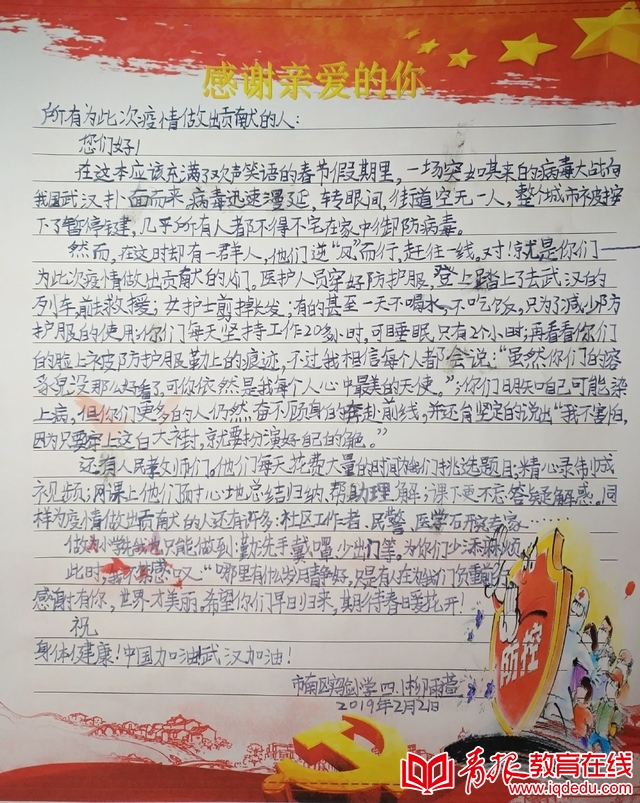 感谢亲爱的你
所有为此次疫情做出贡献的人：
您们好！
在这本应该充满了欢声笑语的春节假期里，一场突如其来的病毒大战向
我国武汉扑面而来，病毒迅速漫延，转眼间，街道空无一人，整个城市被按
下了暂停键，几乎所有人都不得不宅在家中御防病毒。
然而，在这时却有一群人，他们逆“风”而行，赶往一线，对！就是你们——
为此次疫情做出贡献的人们，医护人员穿好防护服，登上踏上了去武汉的
列车前去救援；女护士剪掉长发；有的甚至一天不喝水，不吃饭，只为了减少防
护服的使用；你们每天坚持工作20多小时，可睡眠只有2个小时；再看看你们
的脸上被防护服勒上的痕迹，不过我相信每个人都会说：“虽然你们的容
没那么好看了，可你依然是我每个人心中最美的天使。”；你们明知自己可能染
上病，但你们更多的人仍然奋不顾身的奔赴前线，并还有坚定的说出“我不害怕，
因为只要穿上这白大衬，就要扮演好自己的角色。”
还有人民教师们。他们每天花费大量的时间给我们挑选题目；精心录制成
视频；网课上他们耐心地总结归纳，帮助理解；课下更不忘答疑解惑。同
样为疫情做出贡献的人还有许多：社区工作者、民警、医学研究专家……
做为小学生我也只能做到：勤洗手戴口罩少出门等。为你们少添麻烦
此时，我不禁感叹“哪里有什么岁月静好，只是有人在为我们负重前行
感谢有你，世界才美丽，希望你们早日归来，期待春日爱花开！
祝
身体健康！中国加油武汉加油！
市南区实验小学四.1 雨萱
2019年2月2日
防控
青报教育在线
www.iqdedu.com